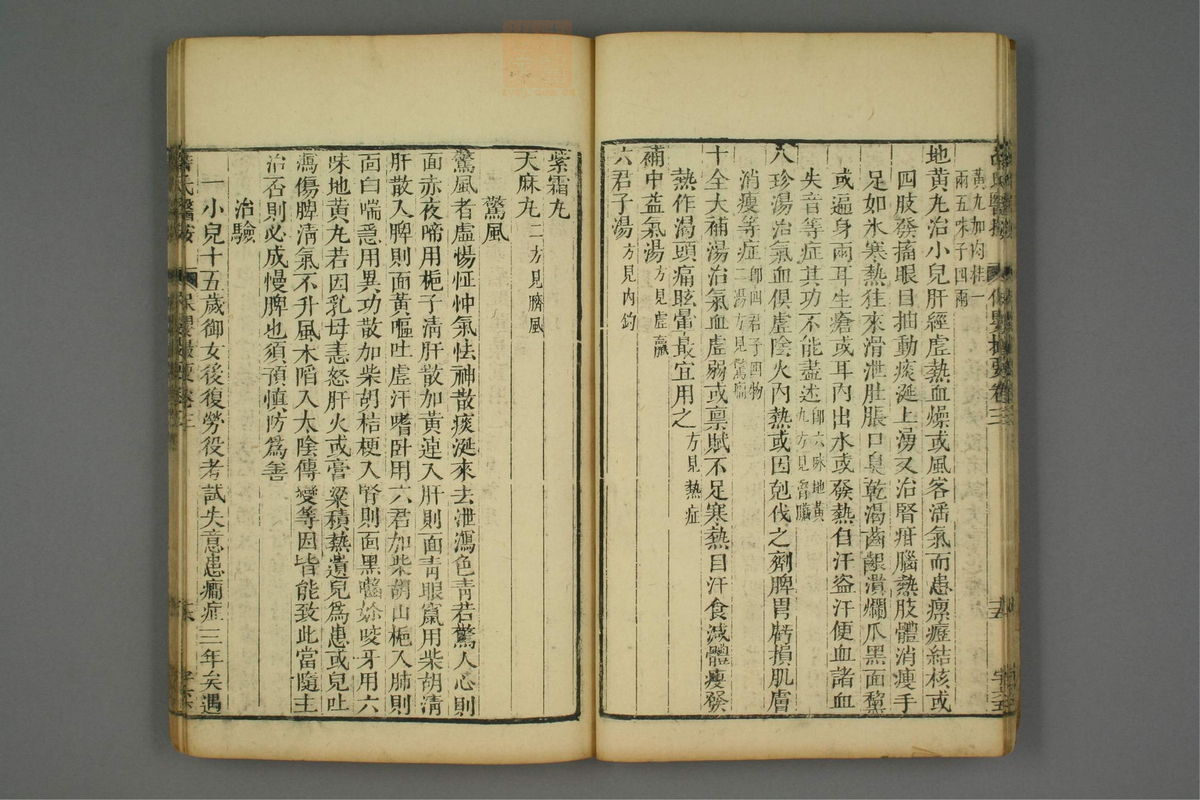 黃丸加肉桂一
兩五味子四兩
地黃丸治小兒肝經虛熱血燥或風客滛氣而患瘰癧結核或
四肢發搐眼目抽動痰涎上湧又治腎疳腦熱肢體消瘦手
足如氷寒熱徃來滑泄肚脹口臭乾渴齒齦潰爛爪黑面黧
或遍身兩耳生瘡或耳內出水或發熱自汗盗汗便血諸血
失音等症其功不能盡述卽六味地黃
丸方見腎臟
八珍湯治氣血俱虛陰火內熱或因剋伐之劑脾胃虧損肌膚
消瘦等症卽四君子四物
二湯方見驚癇
十全大補湯治氣血虛弱或禀賦不足寒熱自汗食減體瘦發
熱作渴頭痛眩暈最宜用之方見熱症
補中益氣湯方見虛羸
六君子湯方見內釣
紫霜丸
天麻丸二方見臍風
驚風
驚風者虛惕怔忡氣怯神散痰涎來去泄瀉色青若驚人心則
面赤夜啼用梔子清肝散加黃連入肝則面青眼竄用柴胡清
肝散入脾則面黃嘔吐虛汗嗜卧用六君加柴胡山梔入肺則
面白喘急用異功散加柴胡桔梗入腎則面黑齧妳咬牙用六
味地黃丸若因乳母恚怒肝火或膏粱積熱遺兒爲患或兒吐
瀉傷脾清氣不升風木陷入太陰傳變等因皆能致此當隨主
治否則必成慢脾也須預慎防爲善
治驗
一小兒十五歲御女後復勞役考試失意患癎症三年矣遇